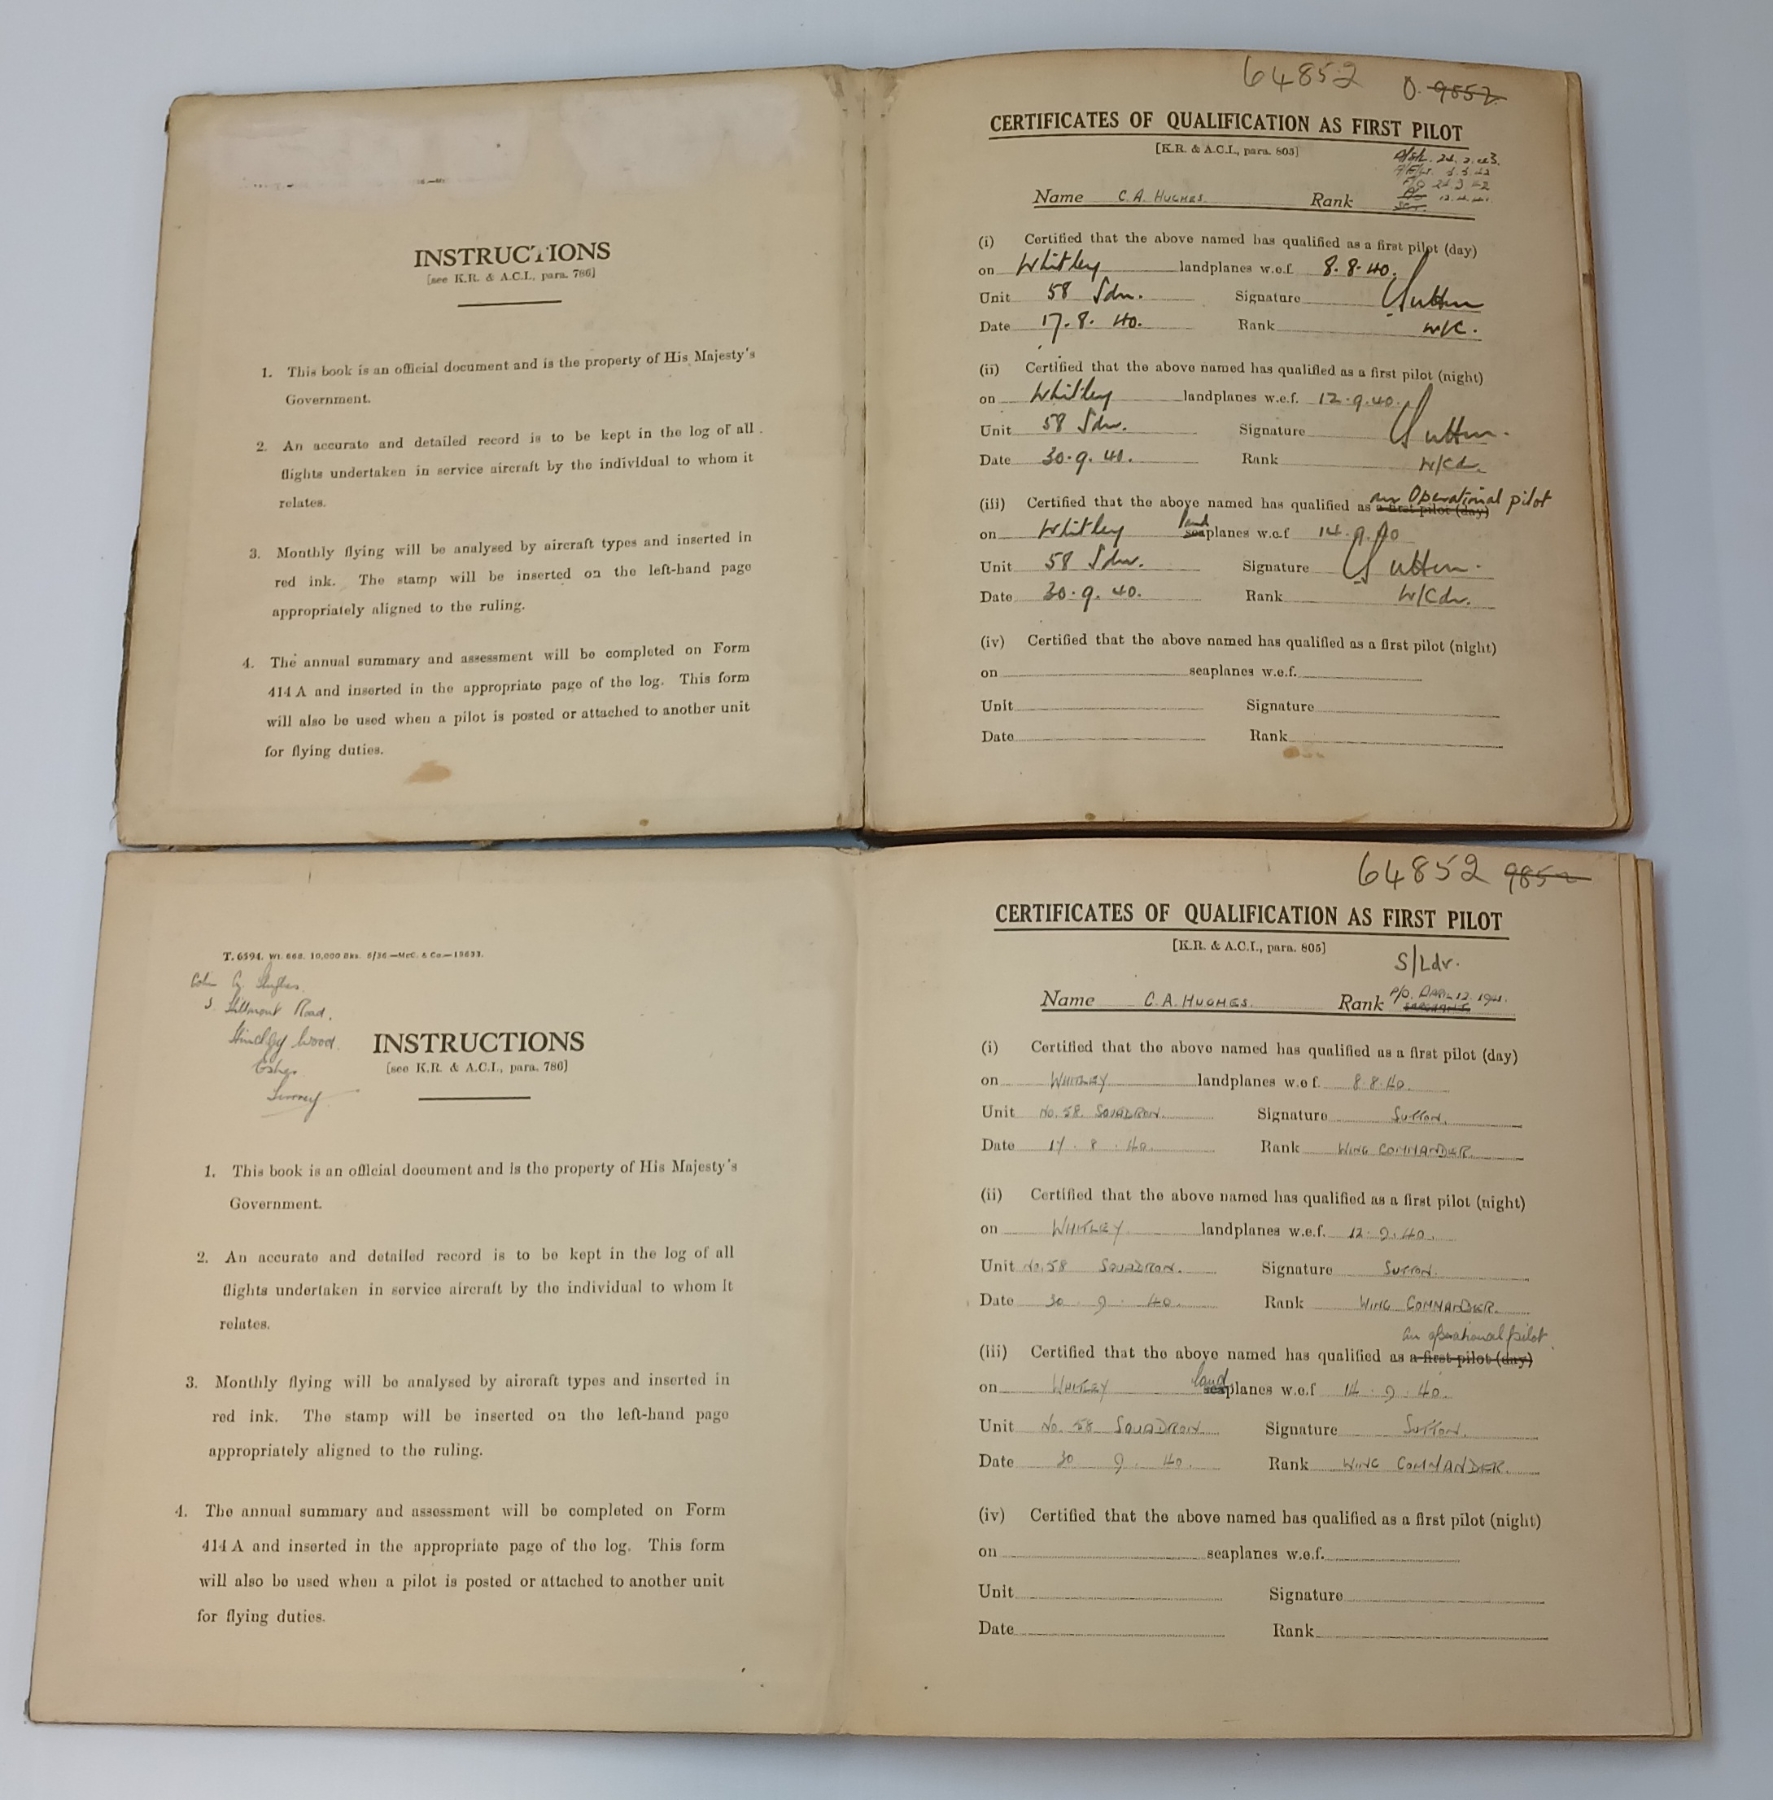 INSTRUCTIONS
[see K.R. & A.C.I., para. 786]
1. This book is an official document and is the property of His Majesty's
Government.
2. An accurate and detailed record is to be kept in the log of all
flights undertaken in service aircraft by the individual to whom it
relates.
3. Monthly flying will be analysed by aircraft types and inserted in
red ink. The stamp will be inserted on the left-hand page
appropriately aligned to the ruling.
4. The annual summary and assessment will be completed on Form
414 A and inserted in the appropriate page of the log. This form
will also be used when a pilot is posted or attached to another unit
for flying duties.
64852 O. 9852
CERTIFICATES OF QUALIFICATION AS FIRST PILOT
[K.R. & A.C.I., para. 805]
Name C. A. HUGHES. Rank
(i) Certified that the above named has qualified as a first pilot (day)
on Whitley landplanes w.e.f. 8.8.40.
Unit 58 Sdn. Signature Sutton
Date 17.8.40. Rank W/C.
(ii) Certified that the above named has qualified as a first pilot (night)
on Whitley landplanes w.e.f. 12.9.40.
Unit 58 Sdn. Signature Sutton.
Date 30.9.40. Rank W/Cdr.
an Operational pilot
(iii) Certified that the above named has qualified as a first pilot (day)
on Whitley land seaplanes w.e.f 14.9.40
Unit 58 Sdn. Signature Sutton.
Date 30.9.40. Rank W/Cdr.
(iv) Certified that the above named has qualified as a first pilot (night)
on seaplanes w.e.f.
Unit Signature
Date Rank
T. 6594. Wt. 668. 10,000 Bks. 6/36—McC. & Co.—19633.
Colin A. Hughes.
Road.
Hinchley Wood.
Esher
Surrey
INSTRUCTIONS
[see K.R. & A.C.I., para. 786]
1. This book is an official document and is the property of His Majesty's
Government.
2. An accurate and detailed record is to be kept in the log of all
flights undertaken in service aircraft by the individual to whom it
relates.
3. Monthly flying will be analysed by aircraft types and inserted in
red ink. The stamp will be inserted on the left-hand page
appropriately aligned to the ruling.
4. The annual summary and assessment will be completed on Form
414 A and inserted in the appropriate page of the log. This form
will also be used when a pilot is posted or attached to another unit
for flying duties.
64852 9852
CERTIFICATES OF QUALIFICATION AS FIRST PILOT
[K.R. & A.C.I., para. 805]
S/Ldr.
Name C. A. HUGHES. Rank P/O. 12. 1941.
SERGEANT.
(i) Certified that the above named has qualified as a first pilot (day)
on WHITLEY landplanes w.e.f. 8.8.40.
Unit No. 58. SQUADRON. Signature SUTTON.
Date 17.8.40. Rank WING COMMANDER.
(ii) Certified that the above named has qualified as a first pilot (night)
on WHITLEY landplanes w.e.f. 12.9.40.
Unit No. 58 SQUADRON. Signature SUTTON.
Date 30.9.40. Rank WING COMMANDER.
an operational pilot
(iii) Certified that the above named has qualified as a first pilot (day)
on WHITLEY land seaplanes w.e.f 14.9.40.
Unit No. 58 SQUADRON Signature SUTTON.
Date 30 9. 40. Rank WING COMMANDER.
(iv) Certified that the above named has qualified as a first pilot (night)
on seaplanes w.e.f.
Unit Signature
Date Rank